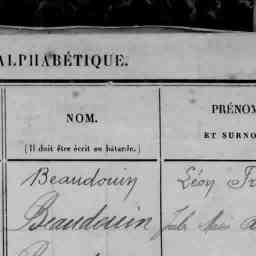 ALPHABÉTIQUE.
NOM.
(Il doit être écrit en bâtarde.)
PRÉNOM
ET SURNO
Beaudouin Léon
Beaudouin Jules